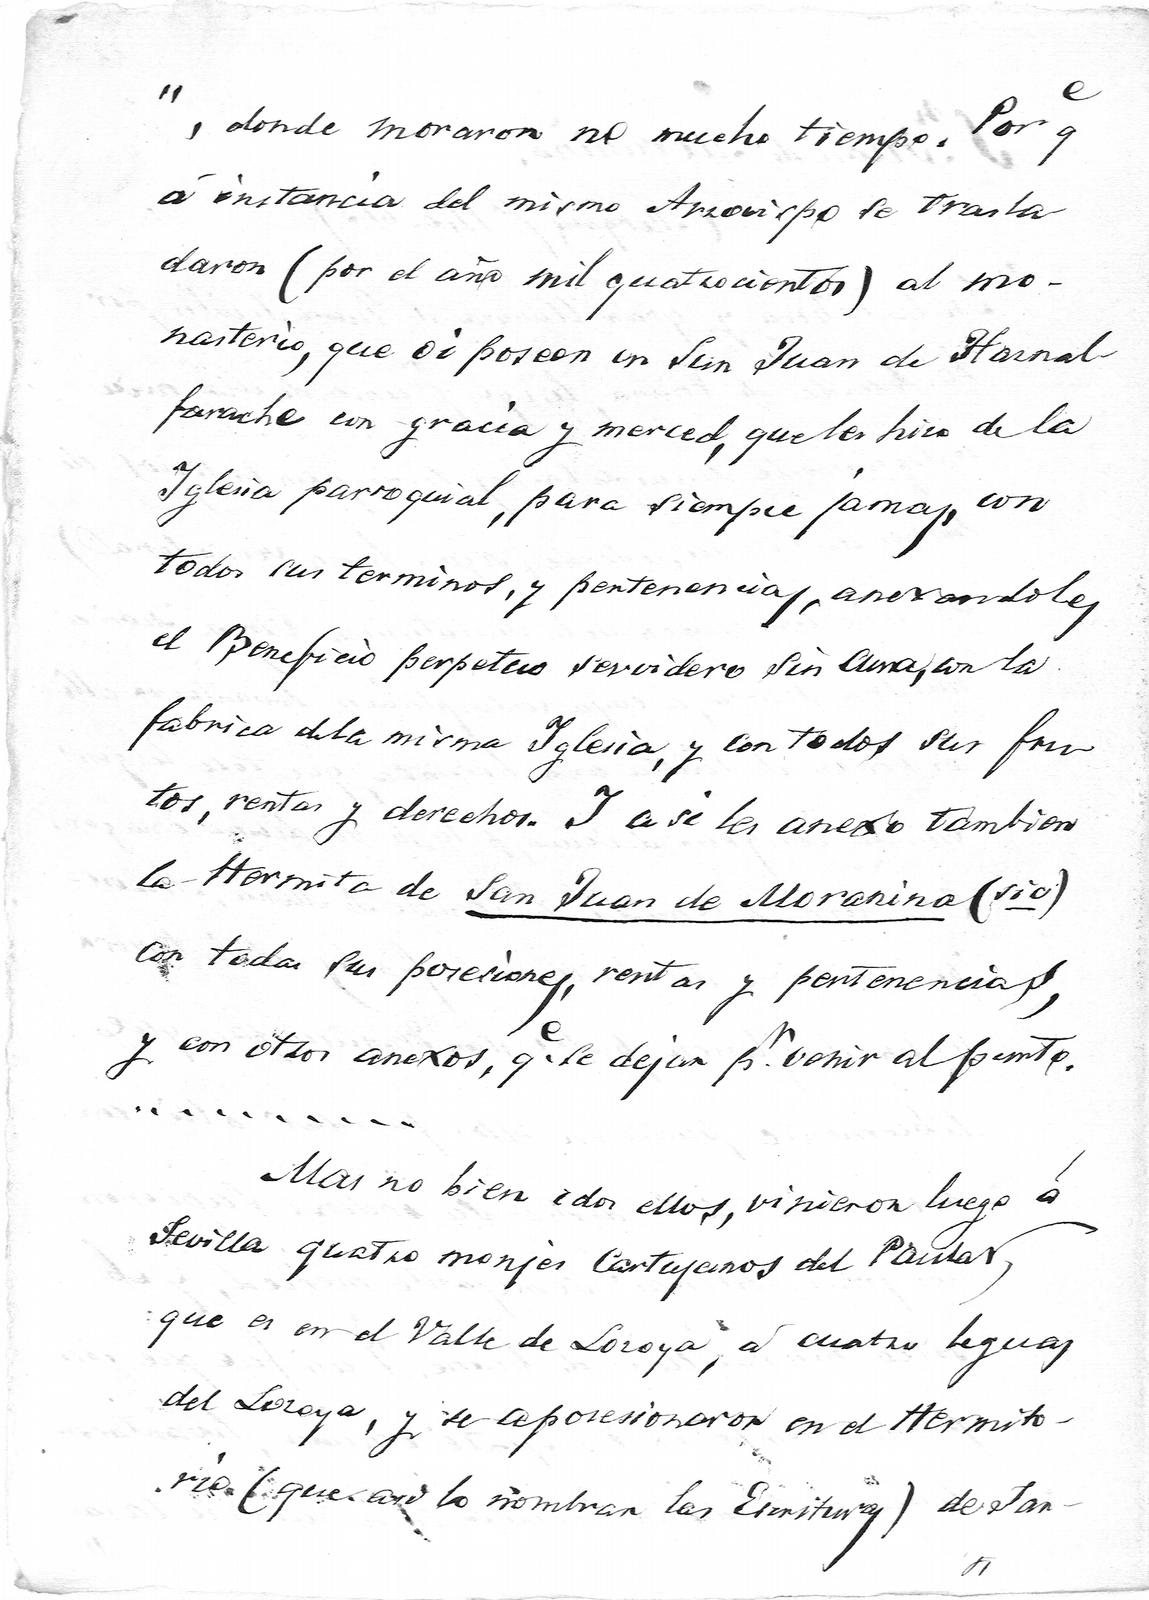 ", donde moraron no mucho tiempo. Por qe
á instancia del mismo Arzovispo se trasla
daron (por el año mil quatrocientos) al mo-
nasterio, que oi poseen en San Juan de Haznal-
farache con gracia y merced, que les hizo de la
Iglesia parroquial, para siempre jamas, con
todos sus terminos, y pertenencias, anexandoles
el Beneficio perpetuo servidero sin Cura, con la
fabrica dela misma Iglesia, y con todos sus fru
tos, rentas y derechos. I asi les anexo tambien
la Hermita de San Juan de Moranina (sic)
con todas sus posesiones, rentas y pertenencias,
y con otros anexos, qe se dejan pr. venir al punto.
- - - - - - - - -
Mas no bien idos ellos, vinieron luego á
Sevilla quatro monjes Cartujanos del Paular,
que es en el Valle de Lozoya, á cuatro leguas
del Lozoya, y se aposesionaron en el Hermito-
rio (que asi lo nombran las Escrituras) de San-